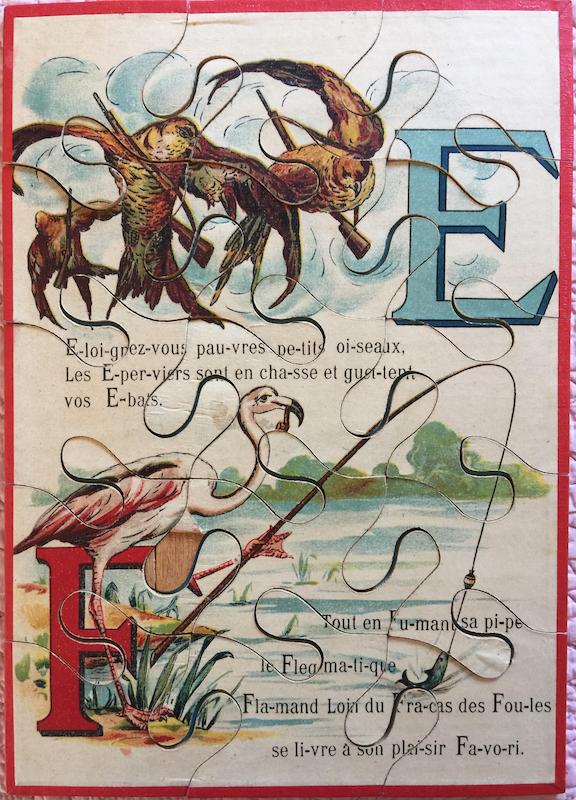 E
E-loi-gnez-vous pau-vres pe-tits oi-seaux,
Les E-per-viers sont en cha-sse et guet-tent
vos E-bats.
F
Tout en Fu-mant sa pi-pe
le Fleg-ma-ti-que
Fla-mand Loin du Fra-cas des Fou-les
se li-vre à son plai-sir Fa-vo-ri.